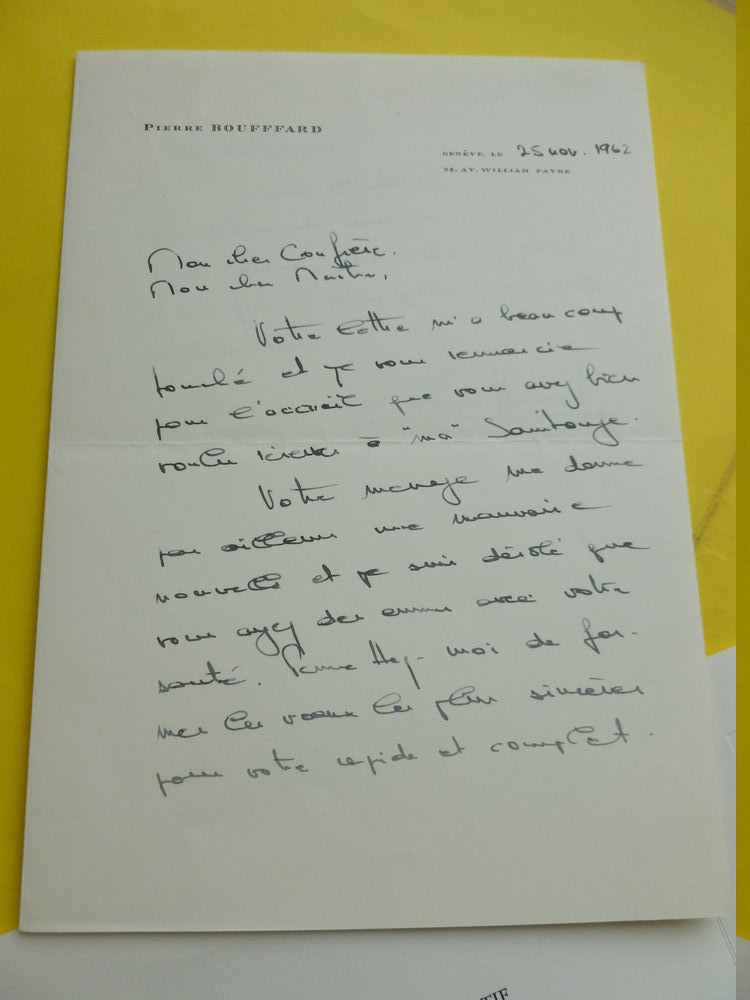 PIERRE BOUFFFARD
GENÈVE, LE 25 nov. 1962
98, AV. WILLIAM FAVRE
Mon cher Confrère,
Mon cher Maître,
Votre lettre m'a beaucoup
touché et je vous remercie
pour l'accueil que vous avez bien
voulu réserver à "ma" Saintonge.
Votre message me donne
par ailleurs une mauvaise
nouvelle et je suis désolé que
vous ayez des ennuis avec votre
santé. Permettez-moi de for-
mer les voeux les plus sincères
pour votre rapide et complet.
TIF